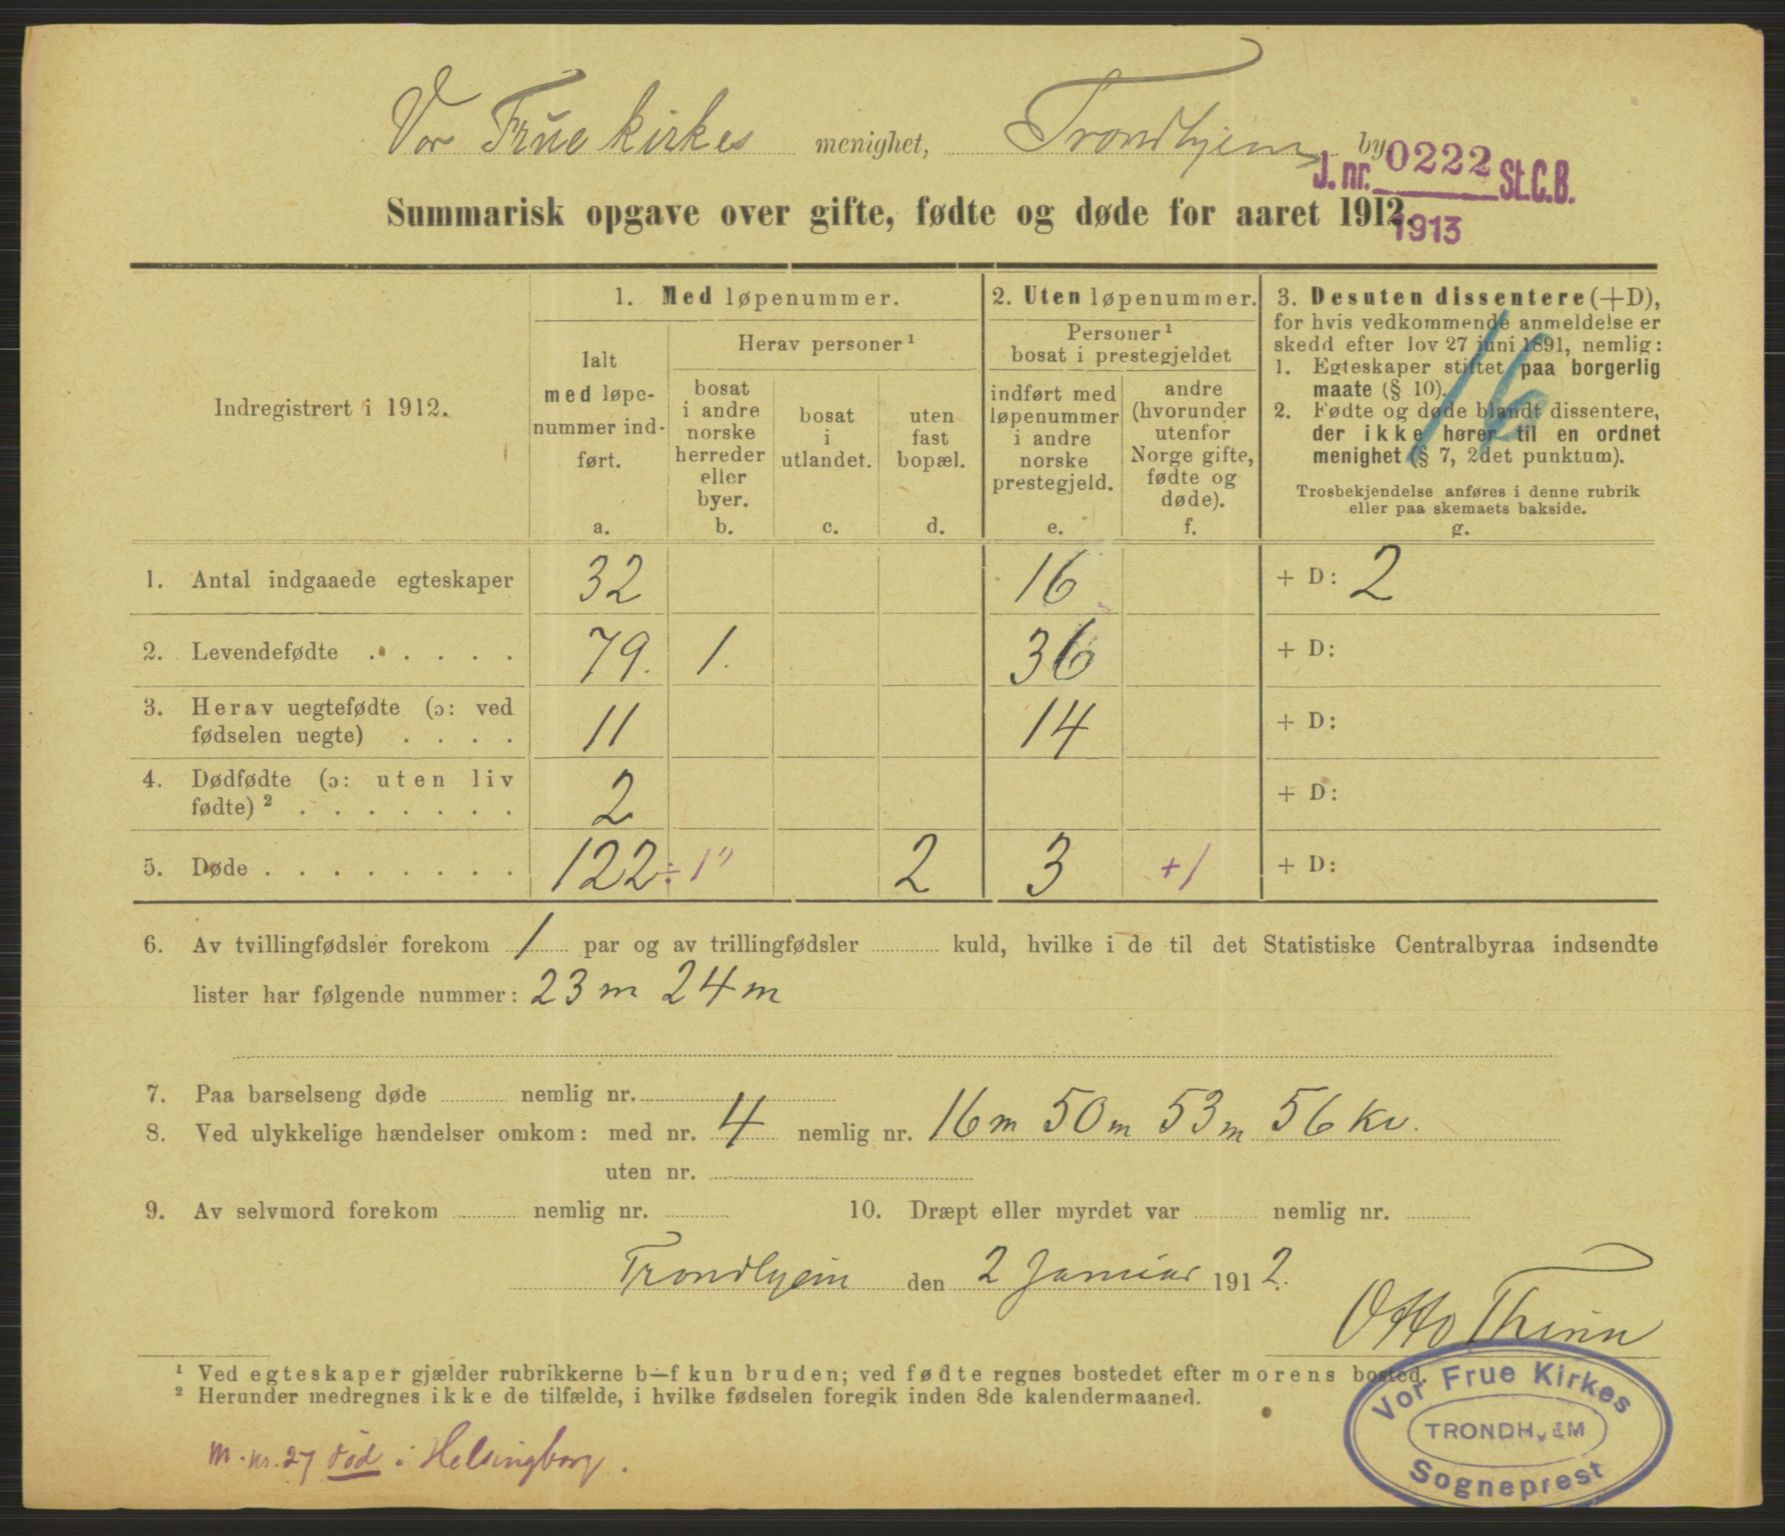 Vor Frue kirkes menighet, Trondhjems by
J. nr. 0222 St.C.B.
1913
Summarisk opgave over gifte, fødte og døde for aaret 1912.
Indregistrert i 1912.
1. Med løpenummer.
Ialt
med løpe-
nummer ind-
ført.
a.
Herav personer ¹
bosat
i andre
norske
herreder
eller
byer.
b.
bosat
i
utlandet.
c.
uten
fast
bopæl.
d.
2. Uten løpenummer.
Personer ¹
bosat i prestegjeldet
indført med
løpenummer
i andre
norske
prestegjeld.
e.
andre
(hvorunder
utenfor
Norge gifte,
fødte og
døde).
f.
3. Desuten dissentere (+D),
for hvis vedkommende anmeldelse er
skedd efter lov 27 juni 1891, nemlig:
1. Egteskaper stiftet paa borgerlig
maate (§ 10).
2. Fødte og døde blandt dissentere,
der ikke hører til en ordnet
menighet (§ 7, 2det punktum).
Trosbekjendelse anføres i denne rubrik
eller paa skemaets bakside.
g.
16
1. Antal indgaaede egteskaper 32 16 + D: 2
2. Levendefødte . . . . . 79. 1. 36 + D:
3. Herav uegtefødte (ɔ: ved
fødselen uegte) . . . . 11 14 + D:
4. Dødfødte (ɔ: uten liv
fødte) ² . . . . . . . 2 + D:
5. Døde . . . . . . . . . 122 ÷ 1" 2 3 +1 + D:
6. Av tvillingfødsler forekom 1 par og av trillingfødsler ........ kuld, hvilke i de til det Statistiske Centralbyraa indsendte
lister har følgende nummer: 23 m 24 m
7. Paa barselseng døde ........ nemlig nr. ........
8. Ved ulykkelige hændelser omkom: med nr. 4 nemlig nr. 16 m 50 m 53 m 56 kv.
uten nr. ........
9. Av selvmord forekom ........ nemlig nr. ........ 10. Dræpt eller myrdet var ........ nemlig nr. ........
Trondhjem den 2 Januar 1912.
Otto Thinn
¹ Ved egteskaper gjælder rubrikkerne b—f kun bruden; ved fødte regnes bostedet efter morens bosted.
² Herunder medregnes ikke de tilfælde, i hvilke fødselen foregik inden 8de kalendermaaned.
Vor Frue Kirkes
TRONDHJEM
Sogneprest
m. nr. 27 død i Helsingborg.